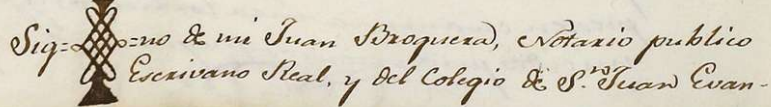 Sig= =no de mi Juan Broquera, Notario publico
Escrivano Real, y del Colegio de S.ⁿ Juan Evan-